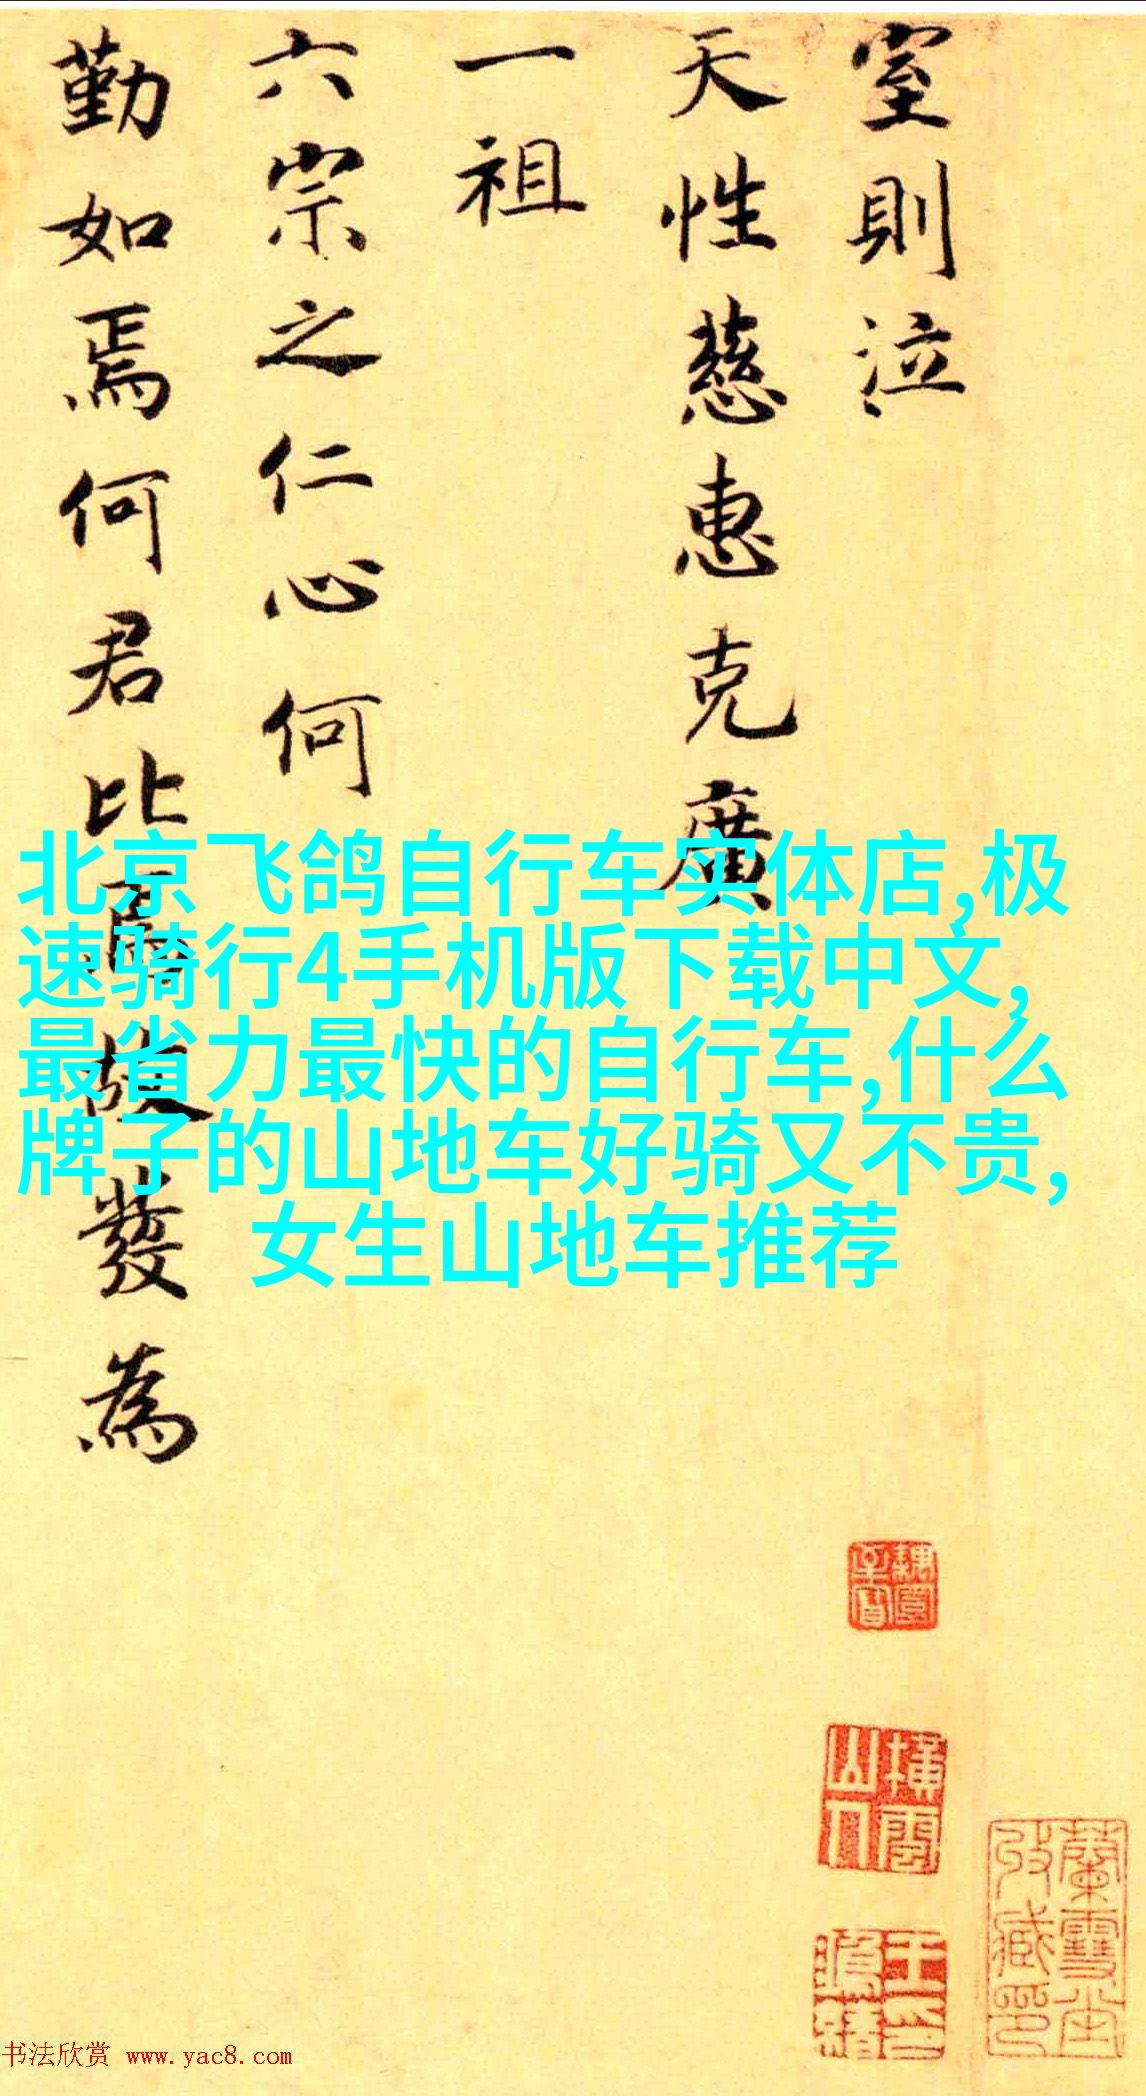 室則泣
天性慈惠克廣
一祖
六宗之仁心何
勤如焉何君比焉故發為
北京飞鸽自行车实体店,极
速骑行4手机版下载中文,
最省力最快的自行车,什么
牌子的山地车好骑又不贵,
女生山地车推荐
横雲山人
蘭雪堂收藏印
书法欣赏 www.yac8.com